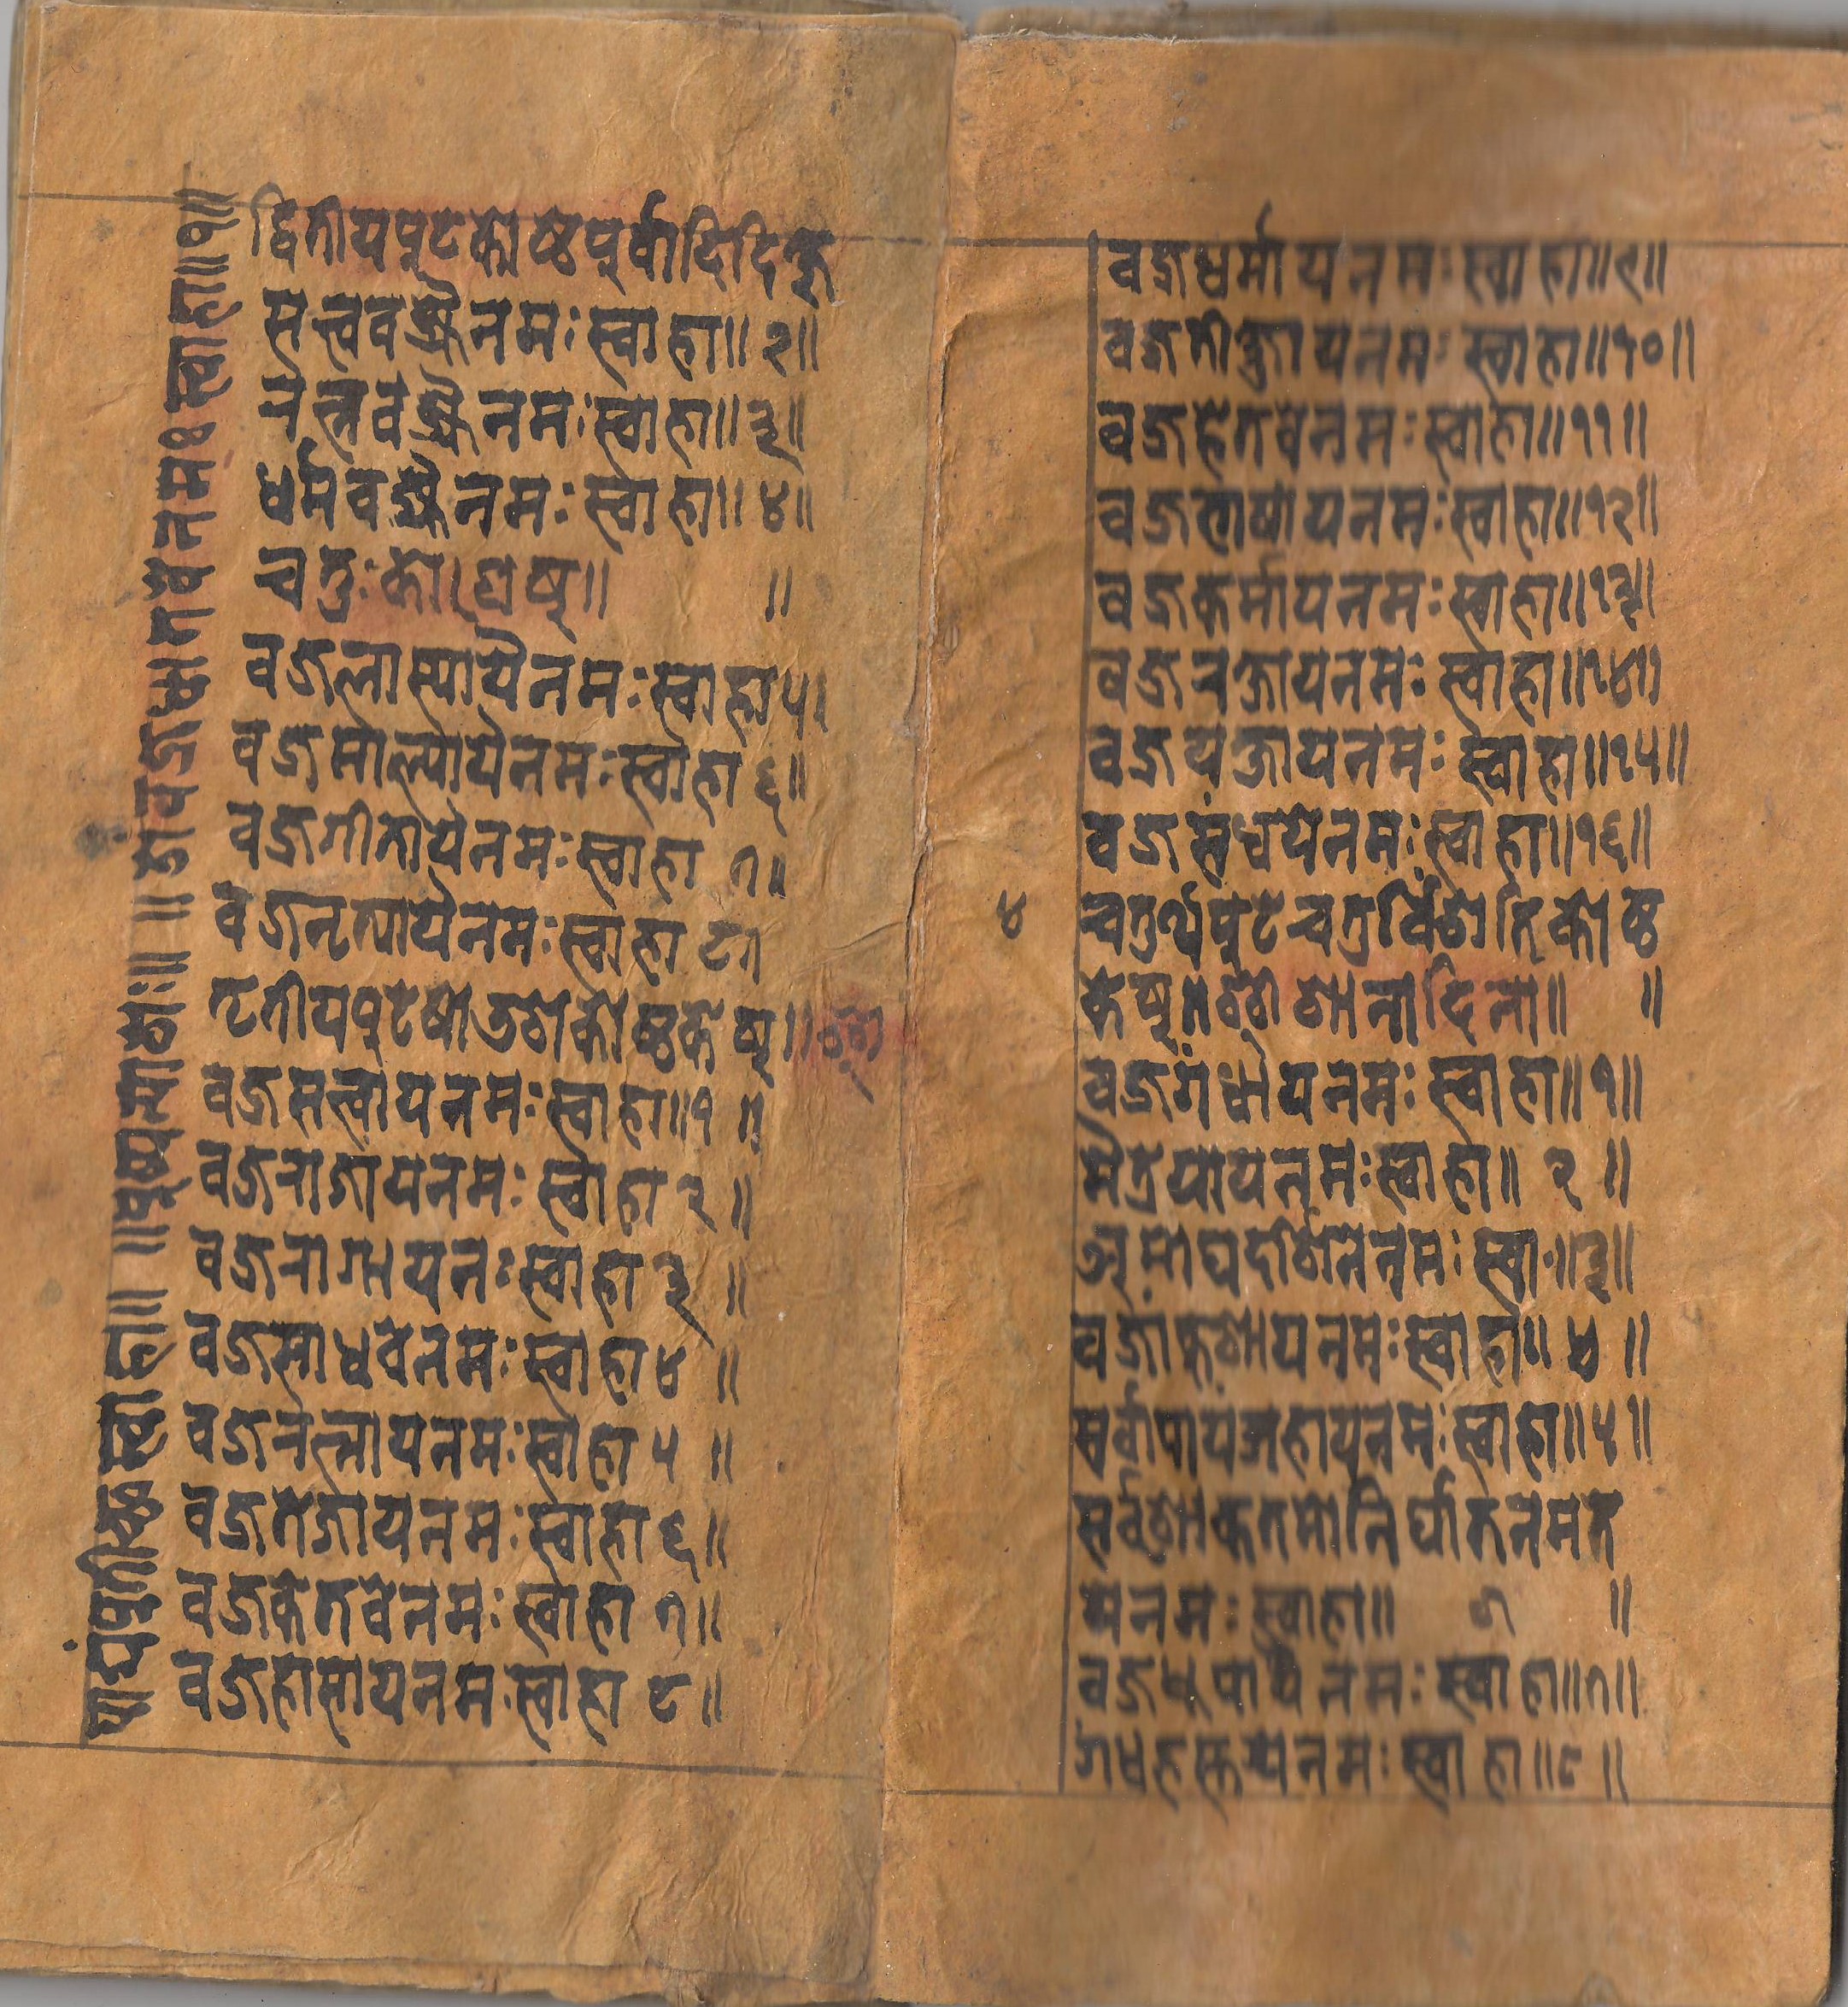 द्वितीयपुटकोष्ठपुर्वादिदिक्षु
सत्त्ववज्र्यैनमःस्वाहा॥२॥
रत्नवज्र्यैनमःस्वाहा॥३॥
धर्मवज्र्यैनमःस्वाहा॥४॥
चतुःकोणेषु॥ ॥
वज्रलास्यायैनमःस्वाहा५।
वज्रमाल्यायैनमःस्वाहा६॥
वज्रगीतायैनमःस्वाहा७॥
वज्रनृत्यायैनमःस्वाहा८॥
तृतीयपुटषोडशकोष्ठकेषु॥
वज्रसत्त्वायनमःस्वाहा॥१॥
वज्रराजायनमःस्वाहा२॥
वज्ररागायनःस्वाहा३॥
वज्रसाधवेनमःस्वाहा४॥
वज्ररत्नायनमःस्वाहा५॥
वज्रतेजायनमःस्वाहा६॥
वज्रकेतवेनमःस्वाहा७॥
वज्रहासायनमःस्वाहा८॥
वज्रधर्मायनमःस्वाहा॥९॥
वज्रतीक्ष्णायनमःस्वाहा॥१०॥
वज्रहेतवेनमःस्वाहा॥११॥
वज्रभाषायनमःस्वाहा॥१२॥
वज्रकर्मायनमःस्वाहा॥१३॥
वज्ररक्षायनमःस्वाहा॥१४॥
वज्रयक्षायनमःस्वाहा॥१५॥
वज्रसंधयेनमःस्वाहा॥१६॥
४
चतुर्थपुटचतुर्विंशतिकोष्ठ
केषु॥ ॥
वज्रगंधायनमःस्वाहा॥१॥
मैत्रेयायनमःस्वाहा॥२॥
अमोघदर्शिनेनमःस्वा॥३॥
वज्रांकुशायनमःस्वाहा॥४॥
सर्वापायजहायनमःस्वाहा॥५॥
सर्वशोकतमोनिर्घातनमत
येनमःस्वाहा॥ ॥
वज्रधूपायैनमःस्वाहा॥७॥
गंधहस्तयेनमःस्वाहा॥८॥